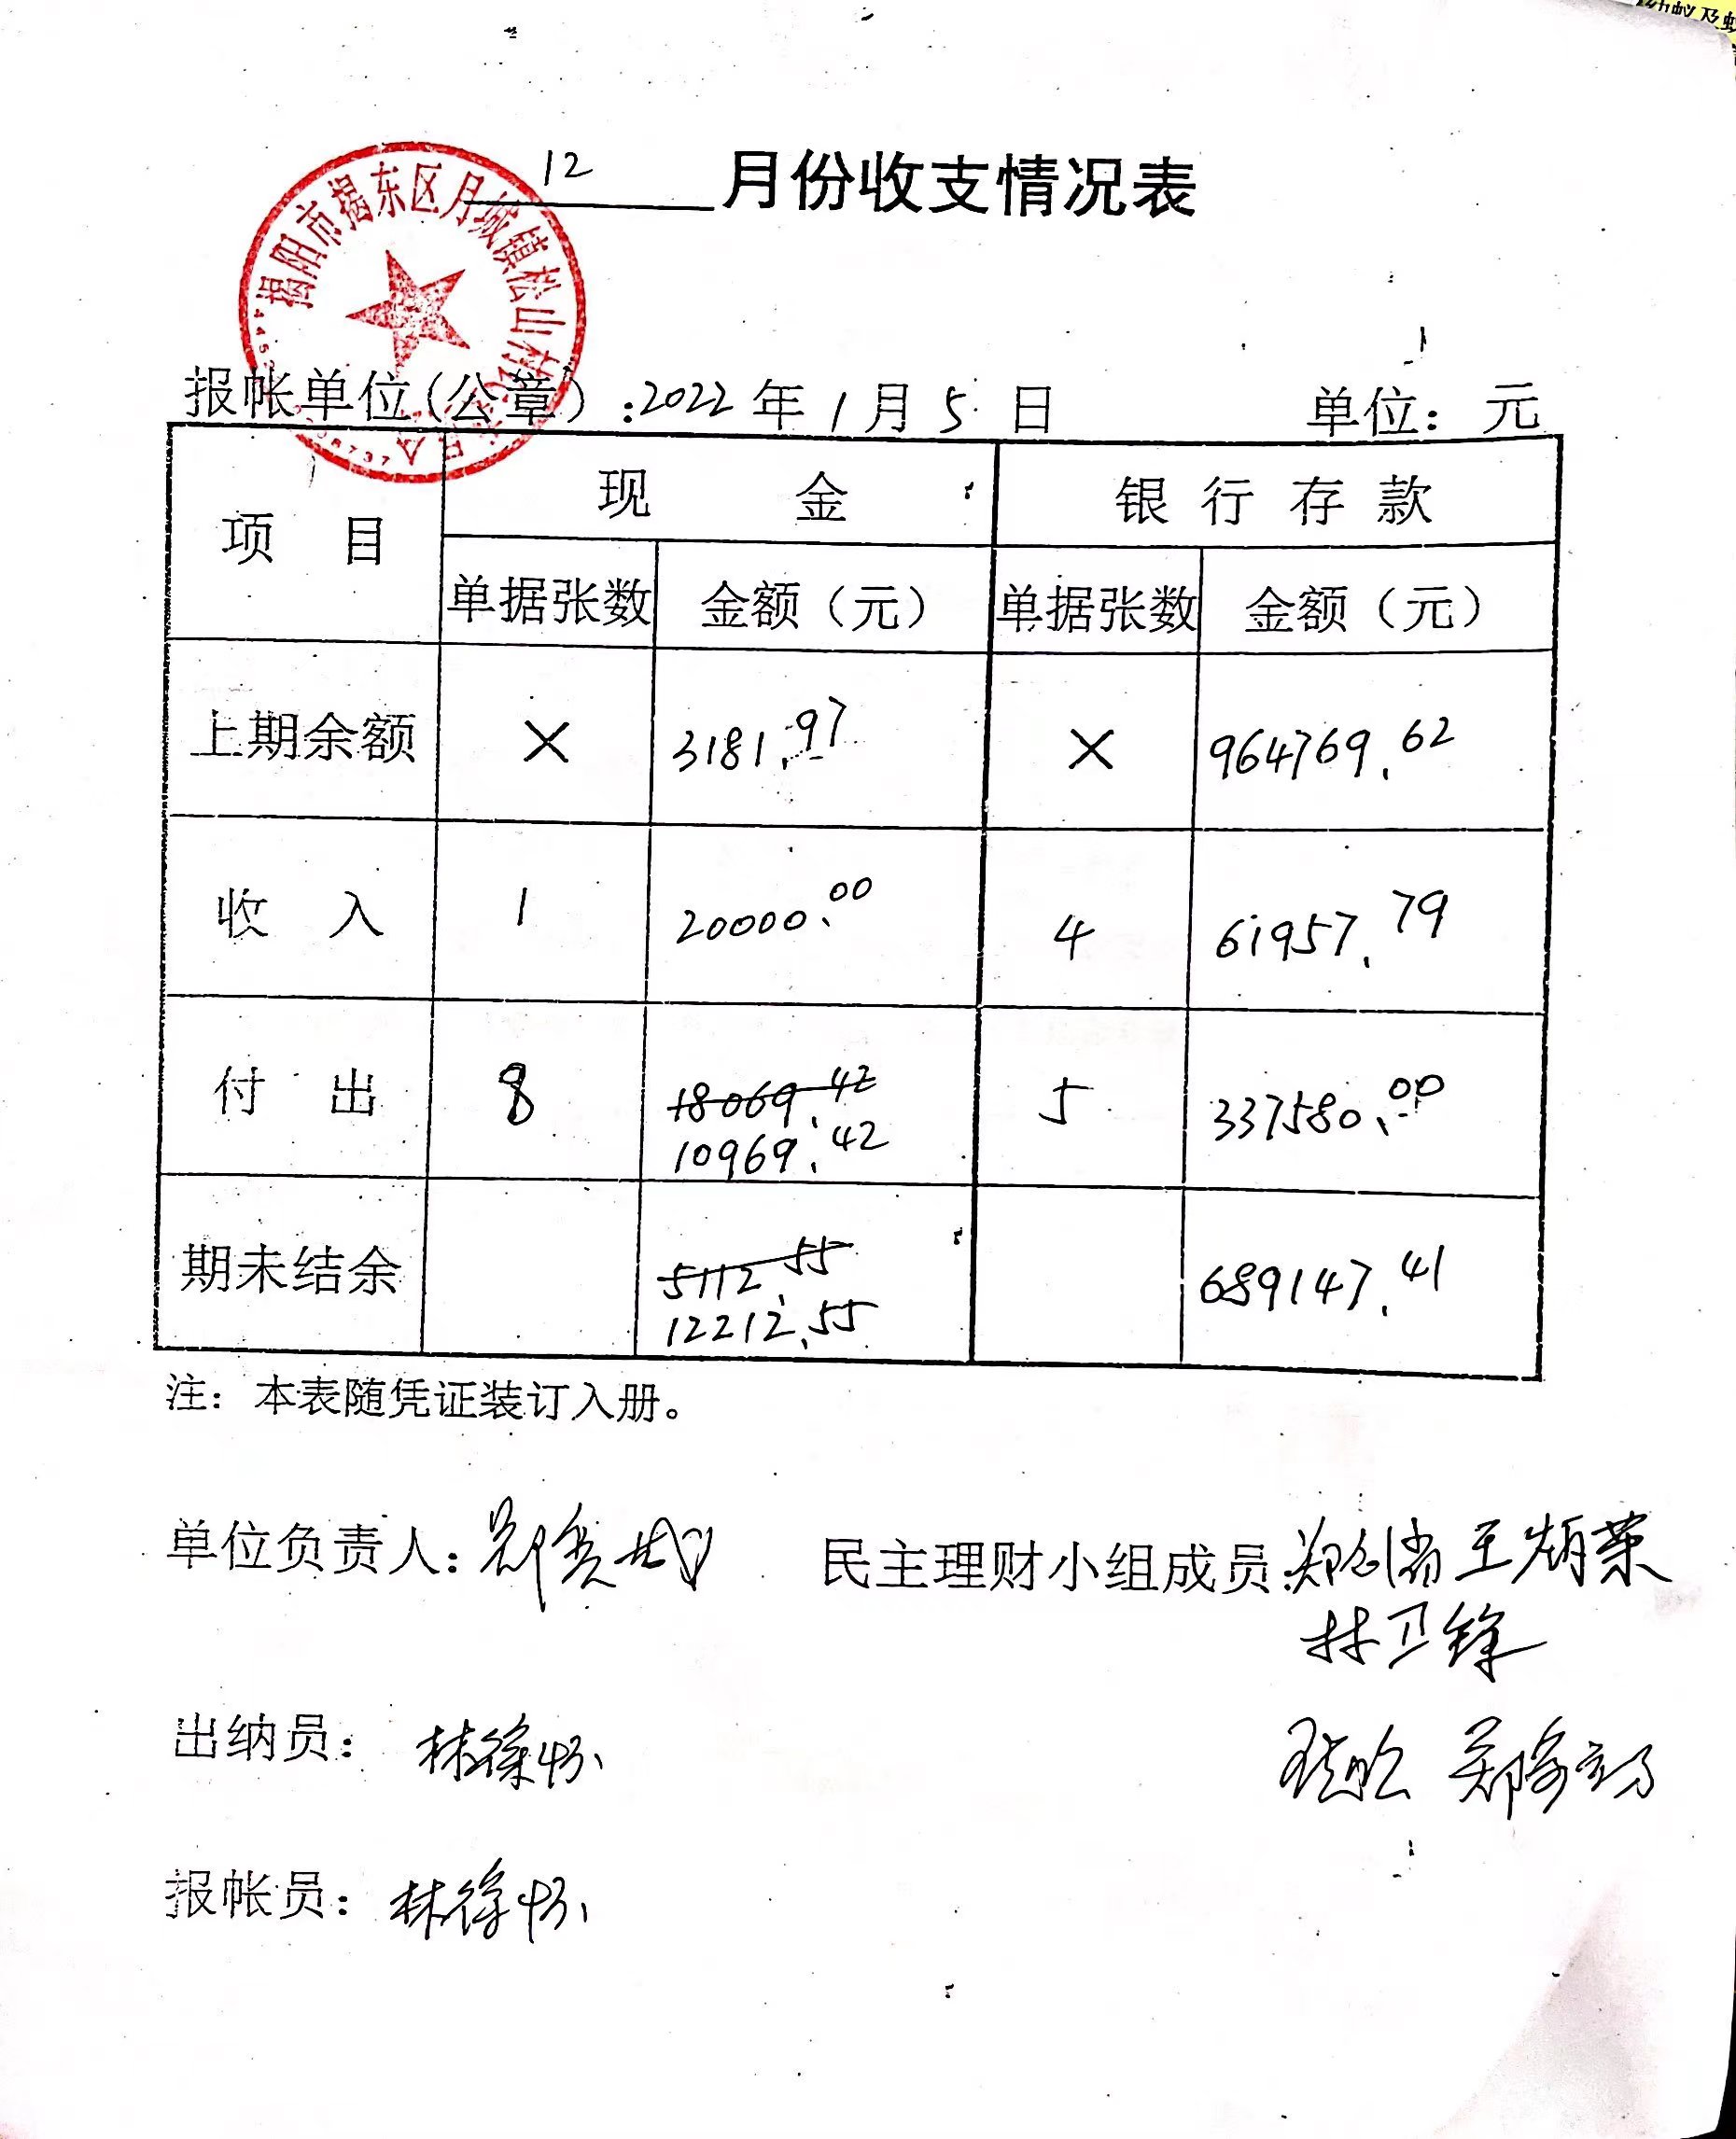 12 月份收支情况表
揭阳市揭东区月城镇松山村
报帐单位(公章):2022年1月5日 单位: 元
项 目 现 金 银行存款
单据张数 金额(元) 单据张数 金额(元)
上期余额 × 3181.97 × 964769.62
收 入 1 20000.00 4 61957.79
付 出 8 18069.42 5 337580.00
10969.42
期未结余 5112.55 689147.41
12212.55
注: 本表随凭证装订入册。
单位负责人: 民主理财小组成员: 王炳荣
林卫锋
出纳员:
报帐员: